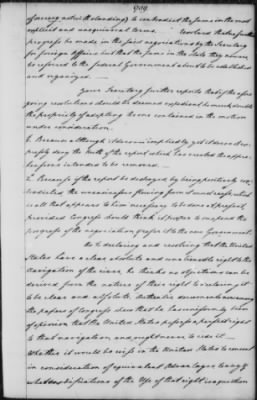 909.
of money notwithstanding to contradict the same in the most
explicit and unequivocal terms. Resolved that no further
progress be made in the said negotiations by the Secretary
for foreign Affairs but that the same in the State they now are
be referred to the federal Government about to be established
and organized.
Your Secretary further reports that if the afore
going resolutions should be deemed expedient he much doubts
the propriety of adopting the one contained in the motion
under consideration.
1. Because although it does impliedly yet it does not ex-
pressly deny the truth of the report which has excited the appre-
hensions intended to be removed
2. Because if the report be destroyed by being positively con-
tradicted the uneasiness flowing from it must cease, which
is all that appears to him necessary to be done at present,
provided Congress should think it proper to suspend the
progress of the negotiation & refer it to the new Government.
As to declaring and resolving that the United
States have a clear absolute and unalienable right to the
navigation of the river, he thinks no objections can be
derived from the nature of their right to declaring it
to be clear and absolute. Authentic documents among
the papers of Congress shew that he has uniformly been
of opinion that the United States possess a perfect right
to that navigation, and ought never to cede it
Whether it would be wise in the United States to consent
in consideration of equivalent Advantages to any
modifications of the Use of that right is a question